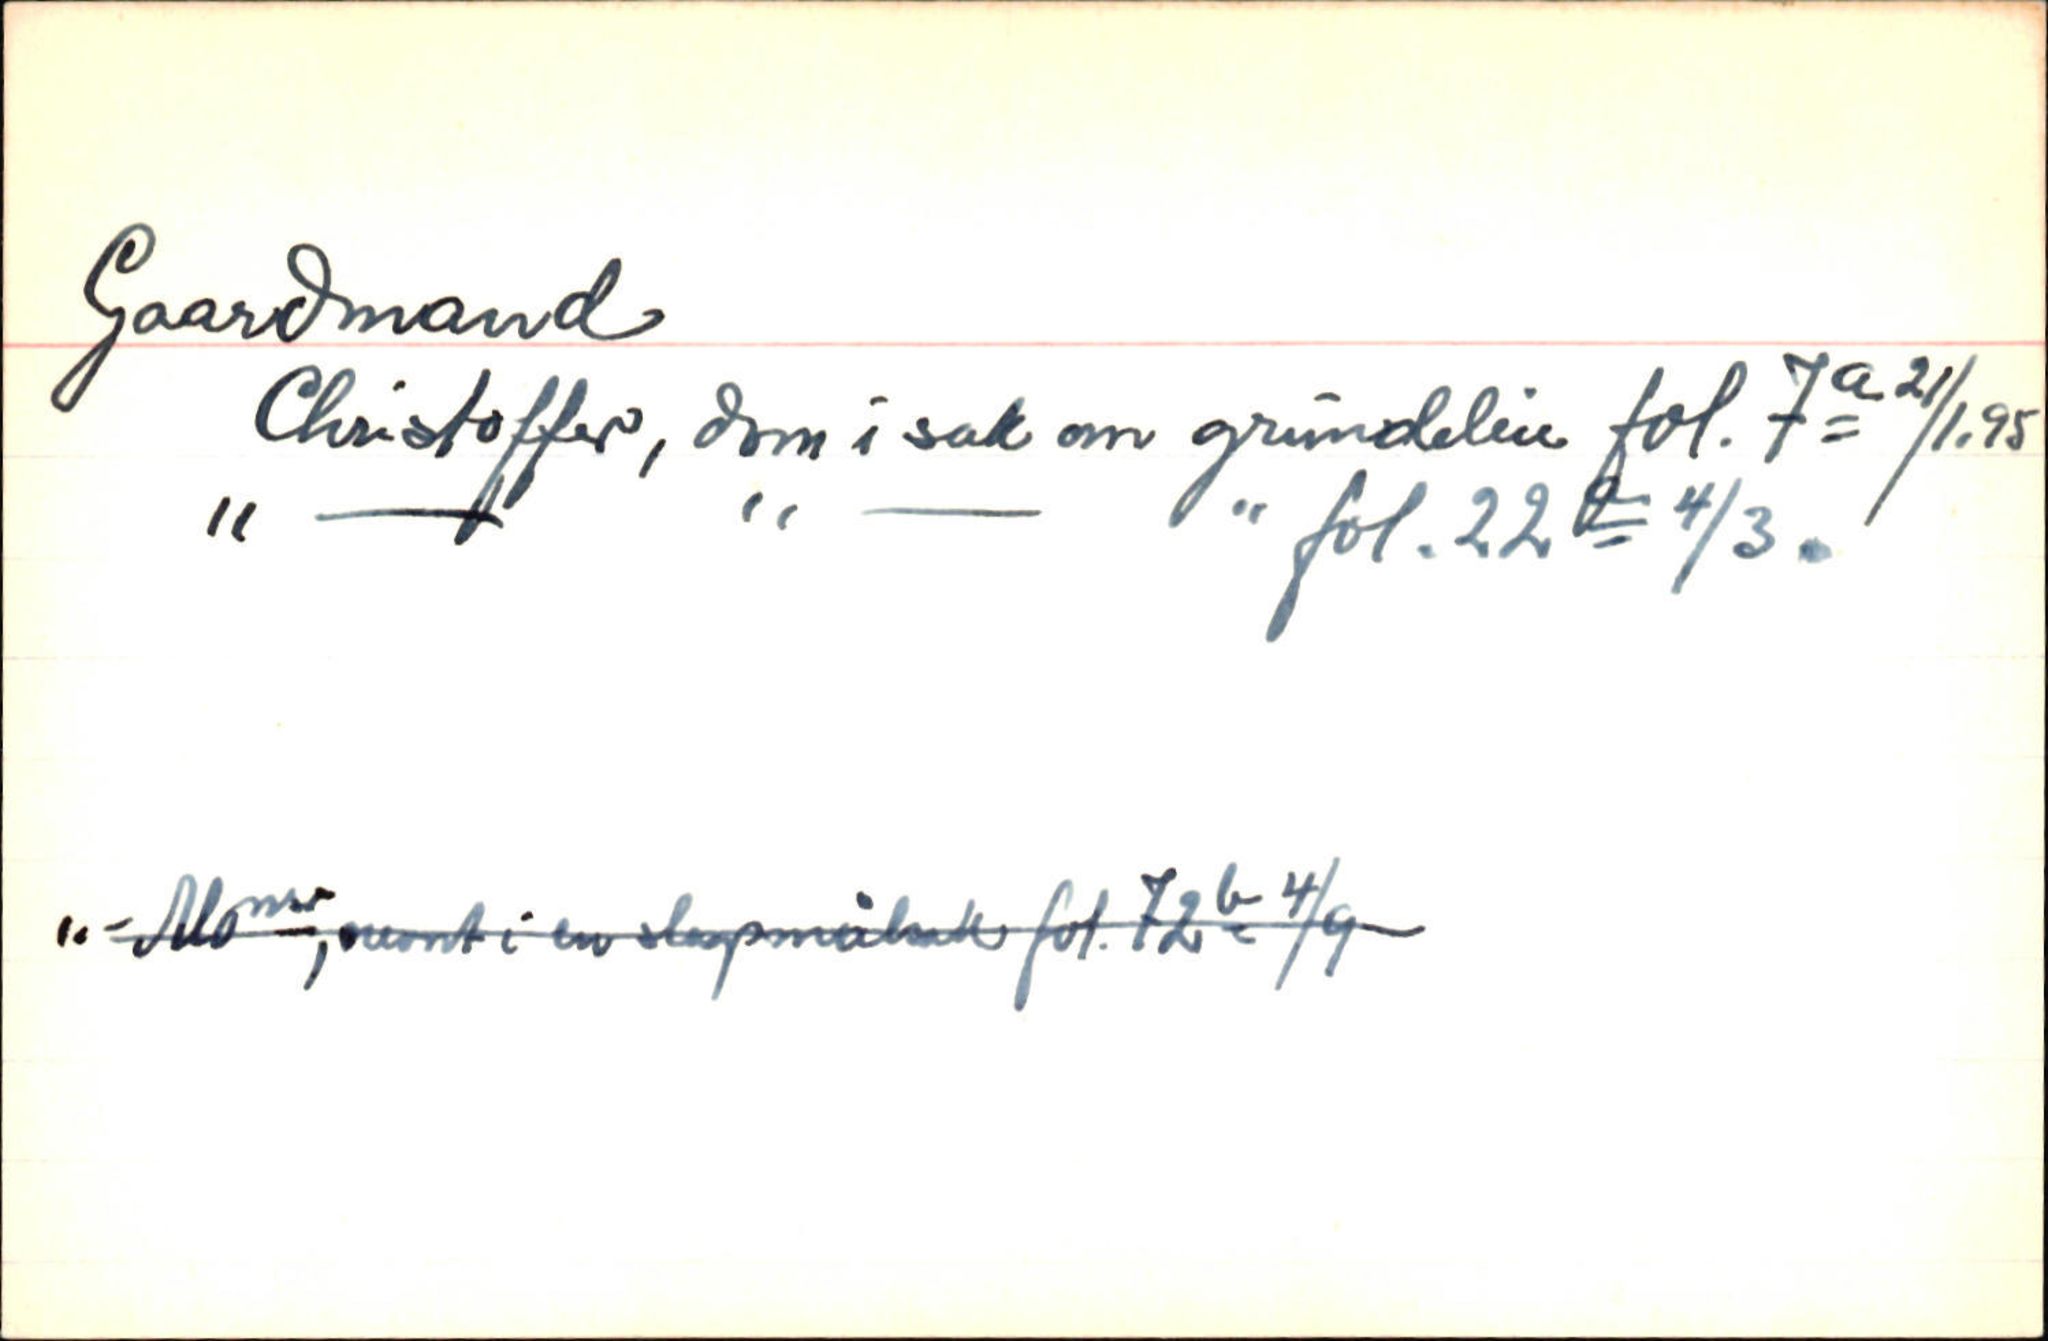 Gaardmand
Christoffer, dom i sak om grundleie fol. 7a 21/1.95
" — " — " fol. 22a 4/3.
" - Monsr, nevnt i en slagsmålsak fol. 72b 4/9